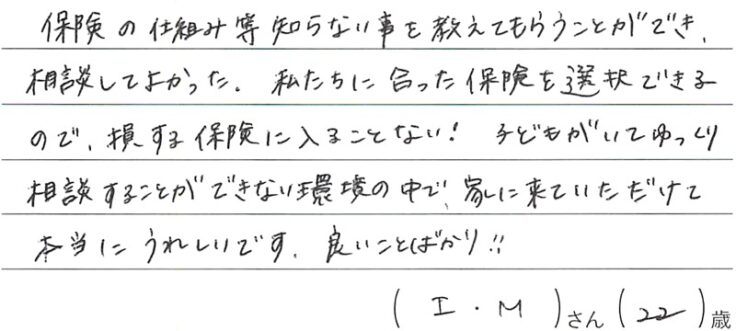 保険の仕組み等知らない事を教えてもらうことができ、
相談してよかった。私たちに合った保険を選択できる
ので、損する保険に入ることない！子どもがいてゆっくり
相談することができない環境の中で、家に来ていただけて
本当にうれしいです。良いことばかり!!
( I・M )さん ( 22 )歳